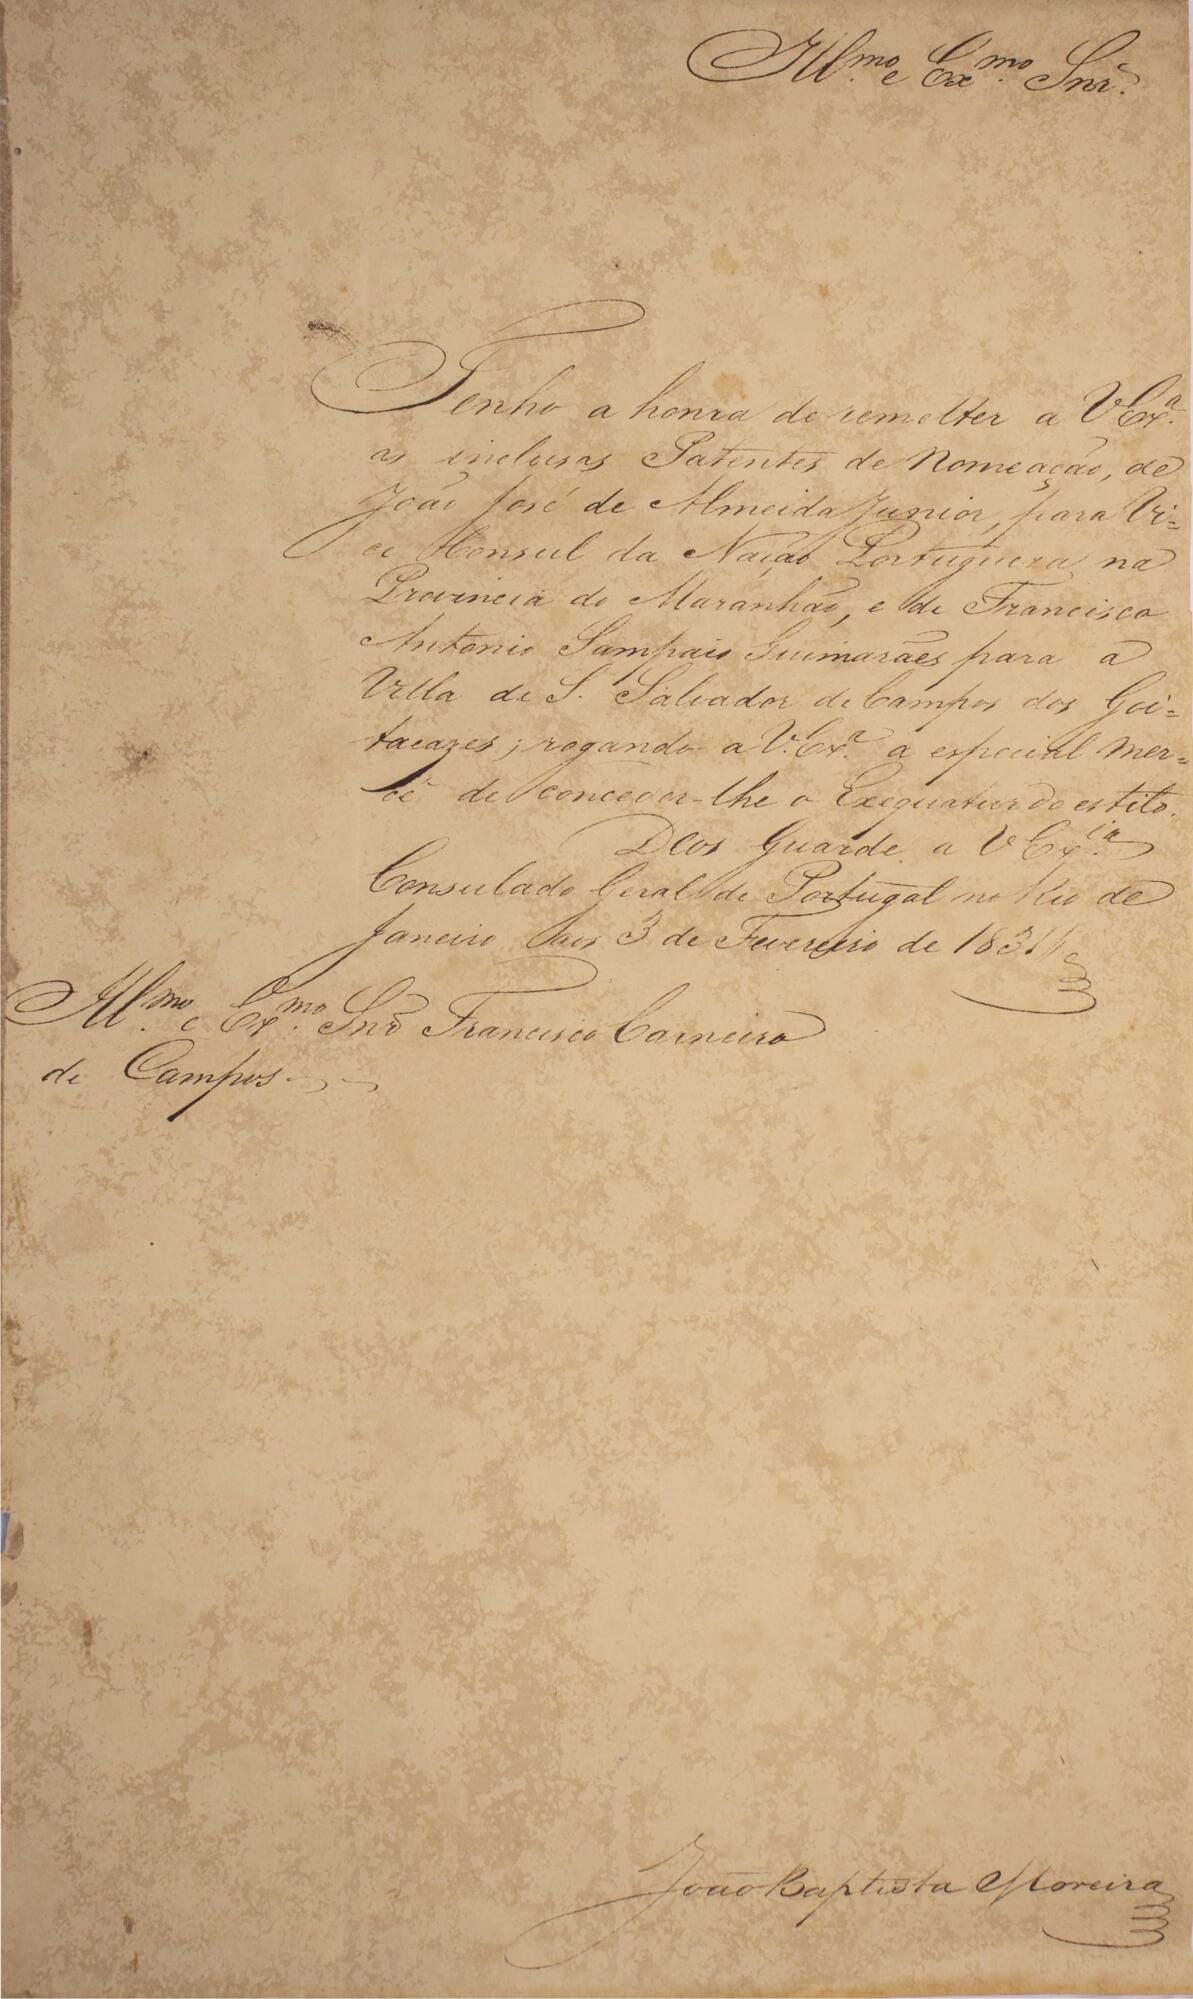 Ill.mo e Ex.mo Snr.
Tenho a honra de remetter a V Ex.a
as inclusas Patentes de Nomeação, de
João José de Almeida Junior, para Vi=
ce Consul da Nação Portugueza na
Provincia do Maranhão, e de Francisco
Antonio Sampaio Guimarães para a
Villa de S. Salvador de Campos dos Goi=
tacazes; rogando a V. Ex.a a especial mer=
cê de conceder-lhe o Exequatur do estilo.
Deos Guarde a V Ex.ia
Consulado Geral de Portugal no Rio de
Janeiro aos 3 de Fevereiro de 1831
Ill.mo e Ex.mo Snr Francisco Carneiro
de Campos
João Baptista Moreira